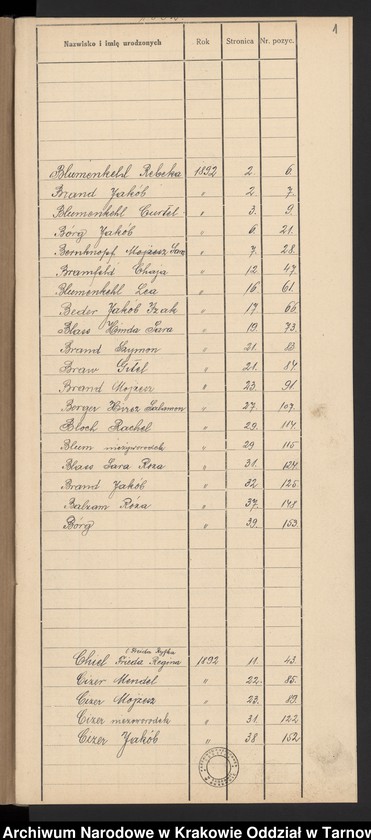 1
Nazwisko i imię urodzonych Rok Stronica Nr. pozyc.
Blumenkehl Rebeka 1892 2. 6.
Brand Jakób " 2. 7.
Blumenkehl Curtel " 3. 9.
Börg Jakób " 6. 21.
Bernknopf Mojżesz " 7. 28.
Bramfeld Chaja " 12 47.
Blumenkehl Lea " 16 61.
Beder Jakób Izak " 17 66.
Blass Hinda Sara " 19 73.
Brand Szymon " 21. 83.
Braw Gitel " 21. 84
Brand Mojżesz " 23. 91.
Berger Hirsz Salamon " 27. 107.
Bloch Rachel " 29. 114.
Blum nieżyworodek " 29 115
Blass Sara Roza " 31. 124.
Brand Jakób " 32. 125.
Balzam Róża " 37. 148.
Börg " 39. 153.
Chiel Frieda Regina 1892 11. 43.
Cizer Mendel " 22. 85.
Cizer Mojżesz " 23. 89.
Cizer " 31. 122
Cizer Jakób " 38 152
Archiwum Narodowe w Krakowie Oddział w Tarnow